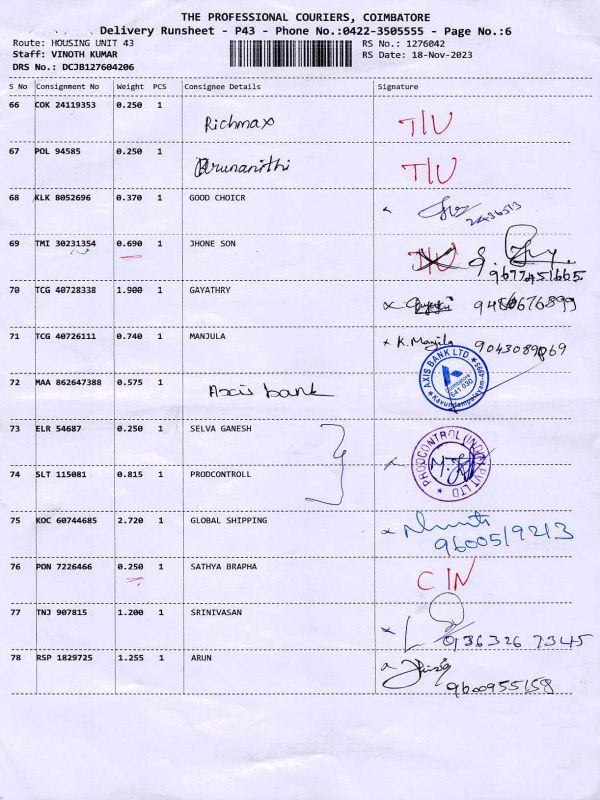 THE PROFESSIONAL COURIERS, COIMBATORE
Delivery Runsheet - P43 - Phone No.:0422-3505555 - Page No.:6
Route: HOUSING UNIT 43 RS No.: 1276042
Staff: VINOTH KUMAR RS Date: 18-Nov-2023
DRS No.: DCJB127604206
S No Consignment No Weight PCS Consignee Details Signature
66 COK 24119353 0.250 1 Richmax T/U
67 POL 94585 0.250 1 T/U
68 KLK 8052696 0.370 1 GOOD CHOICR
69 TMI 30231354 0.690 1 JHONE SON T/U
9677451665
70 TCG 40728338 1.900 1 GAYATHRY
71 TCG 40726111 0.740 1 MANJULA K. Manjila
72 MAA 862647388 0.575 1 Axis bank AXIS BANK LTD Coimbatore 641 030
73 ELR 54687 0.250 1 SELVA GANESH
74 SLT 115081 0.815 1 PRODCONTROLL PRODCONTROL (INDIA) PVT LTD
75 KOC 60744685 2.720 1 GLOBAL SHIPPING
9600519213
76 PON 7226466 0.250 1 SATHYA BRAPHA C IN
77 TNJ 907815 1.200 1 SRINIVASAN
78 RSP 1829725 1.255 1 ARUN
9600955158